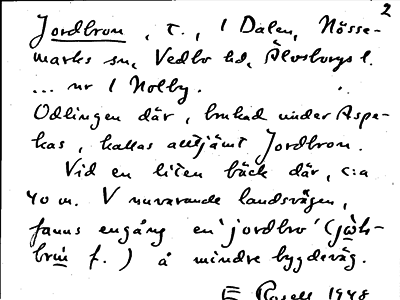 2
Jordbron, t., 1 Dalen, Nösse-
marks sn, Vedbo hd, Älvsborgs l.
... nr 1 Holby.
Odlingen där, brukad under Aspe-
kas, kallas alltjämt Jordbron.
Vid en liten bäck där, c:a
40 m. V nuvarande landsvägen,
fanns engång en 'jordbro' (
f.) å mindre bygdeväg.
E Rosell 1948